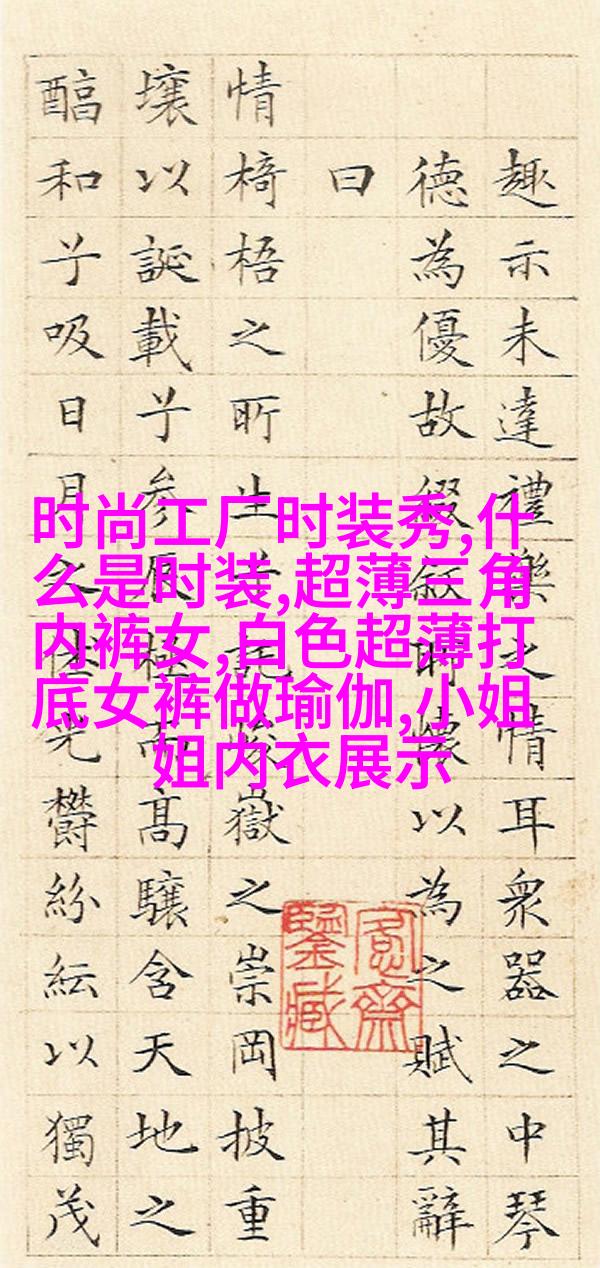 趣示未達禮樂之情耳衆器之中琴
德為優故綴叙所懷以為之賦其辭
曰
情椅梧之所生兮託峻嶽之崇岡披重
壤以誕載兮參辰極而高驤含天地之
醕和兮吸日月之休光鬱紛紜以獨茂
时尚工厂时装秀,什
么是时装,超薄三角
内裤女,白色超薄打
底女裤做瑜伽,小姐
姐内衣展示
愙齋
鑒藏